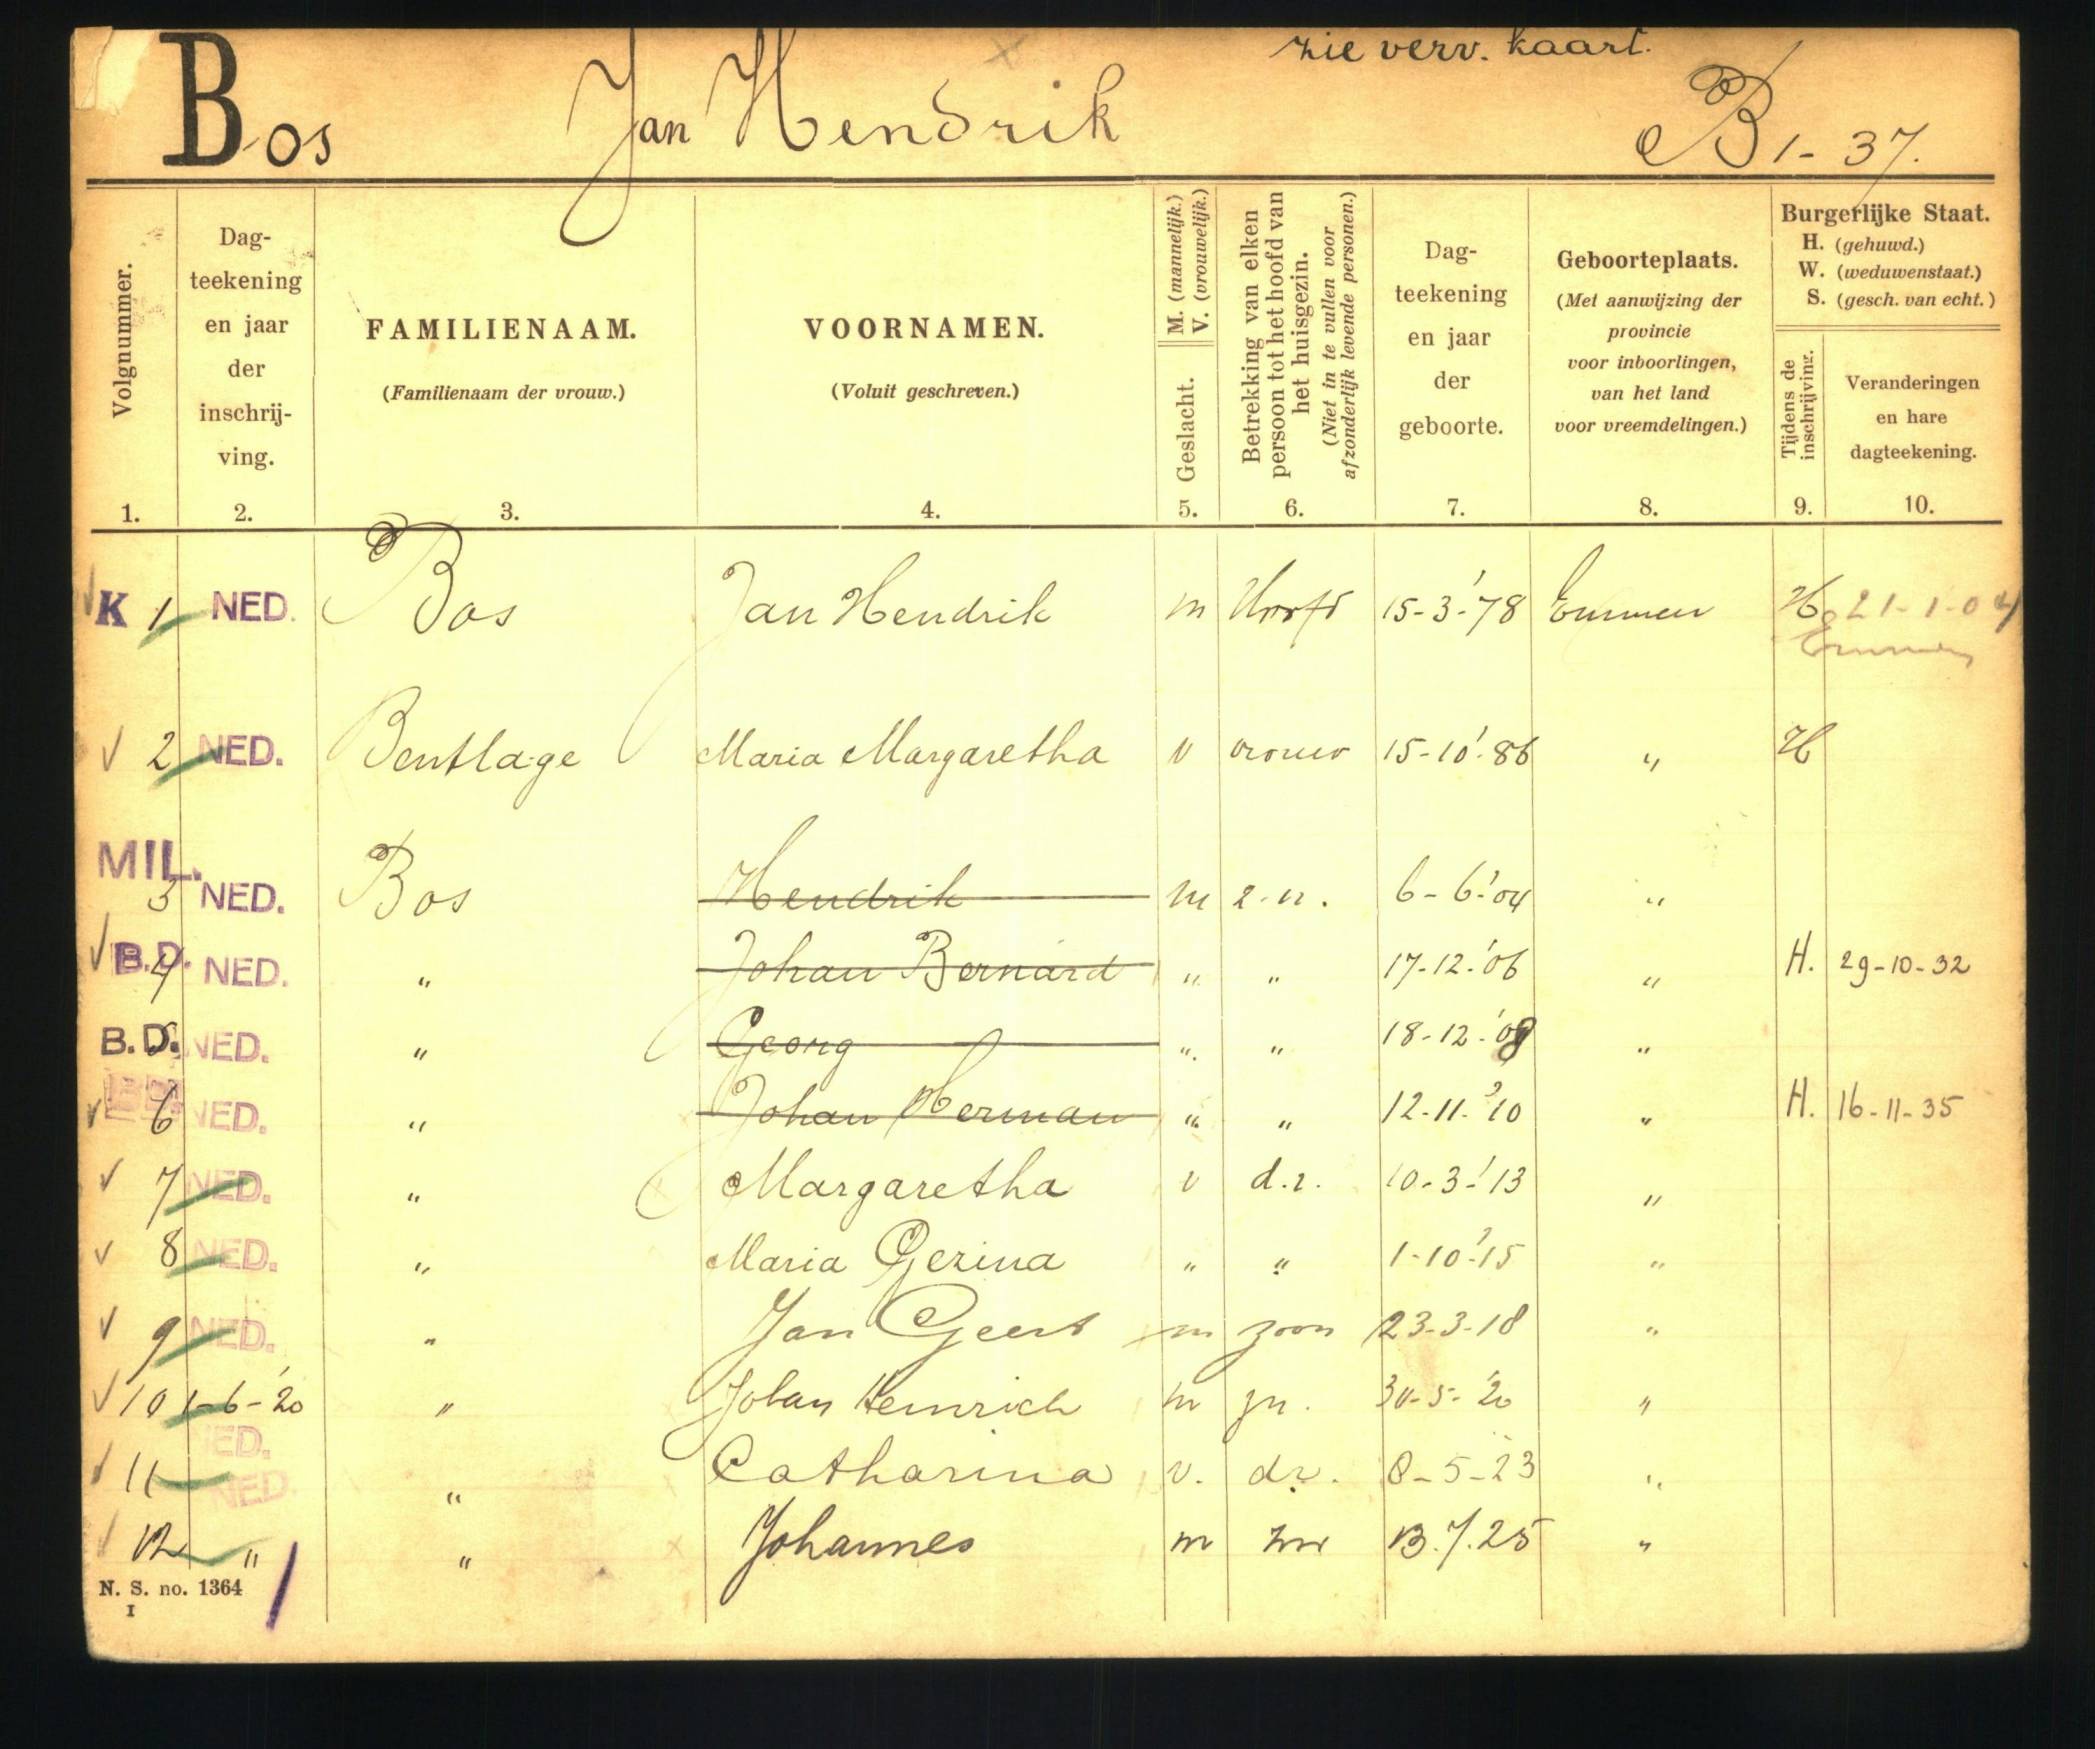 zie verv. kaart.
Bos Jan Hendrik B 1-37.
Volgnummer.
Dag-
teekening
en jaar
der
inschrij-
ving.
FAMILIENAAM.
(Familienaam der vrouw.)
VOORNAMEN.
(Voluit geschreven.)
Geslacht. M. (mannelijk.)
V. (vrouwelijk.)
Betrekking van elken
persoon tot het hoofd van
het huisgezin.
(Niet in te vullen voor
afzonderlijk levende personen.)
Dag-
teekening
en jaar
der
geboorte.
Geboorteplaats.
(Met aanwijzing der
provincie
voor inboorlingen,
van het land
voor vreemdelingen.)
Burgerlijke Staat.
H. (gehuwd.)
W. (weduwenstaat.)
S. (gesch. van echt.)
Tijdens de
inschrijving.
Veranderingen
en hare
dagteekening.
1. 2. 3. 4. 5. 6. 7. 8. 9. 10.
K 1 NED. Bos Jan Hendrik m Hoofd 15-3-'78 Emmen H 21-1-04
Emmen
2 NED. Bentlage Maria Margaretha v vrouw 15-10'-86 " H
MIL.
3 NED. Bos Hendrik m z.n. 6-6-'04 "
B.D. 4 NED. " Johan Bernard " " 17-12-'06 " H. 29-10-32
B.D. NED. " Georg " " 18-12-'08 "
6 NED. " Johan Herman " " 12-11-'10 " H. 16-11-35
7 NED. " Margaretha v d.r. 10-3-'13 "
8 NED. " Maria Gezina " " 1-10-'15 "
9 NED. " Jan Geert m zoon 23-3-18 "
10 1-6-'20 " Johan Heinrich m zn. 30-5-'20 "
NED.
11 NED. " Catharina v. dr. 8-5-23 "
12 " " Johannes m zn 13.7.25 "
N. S. no. 1364
I